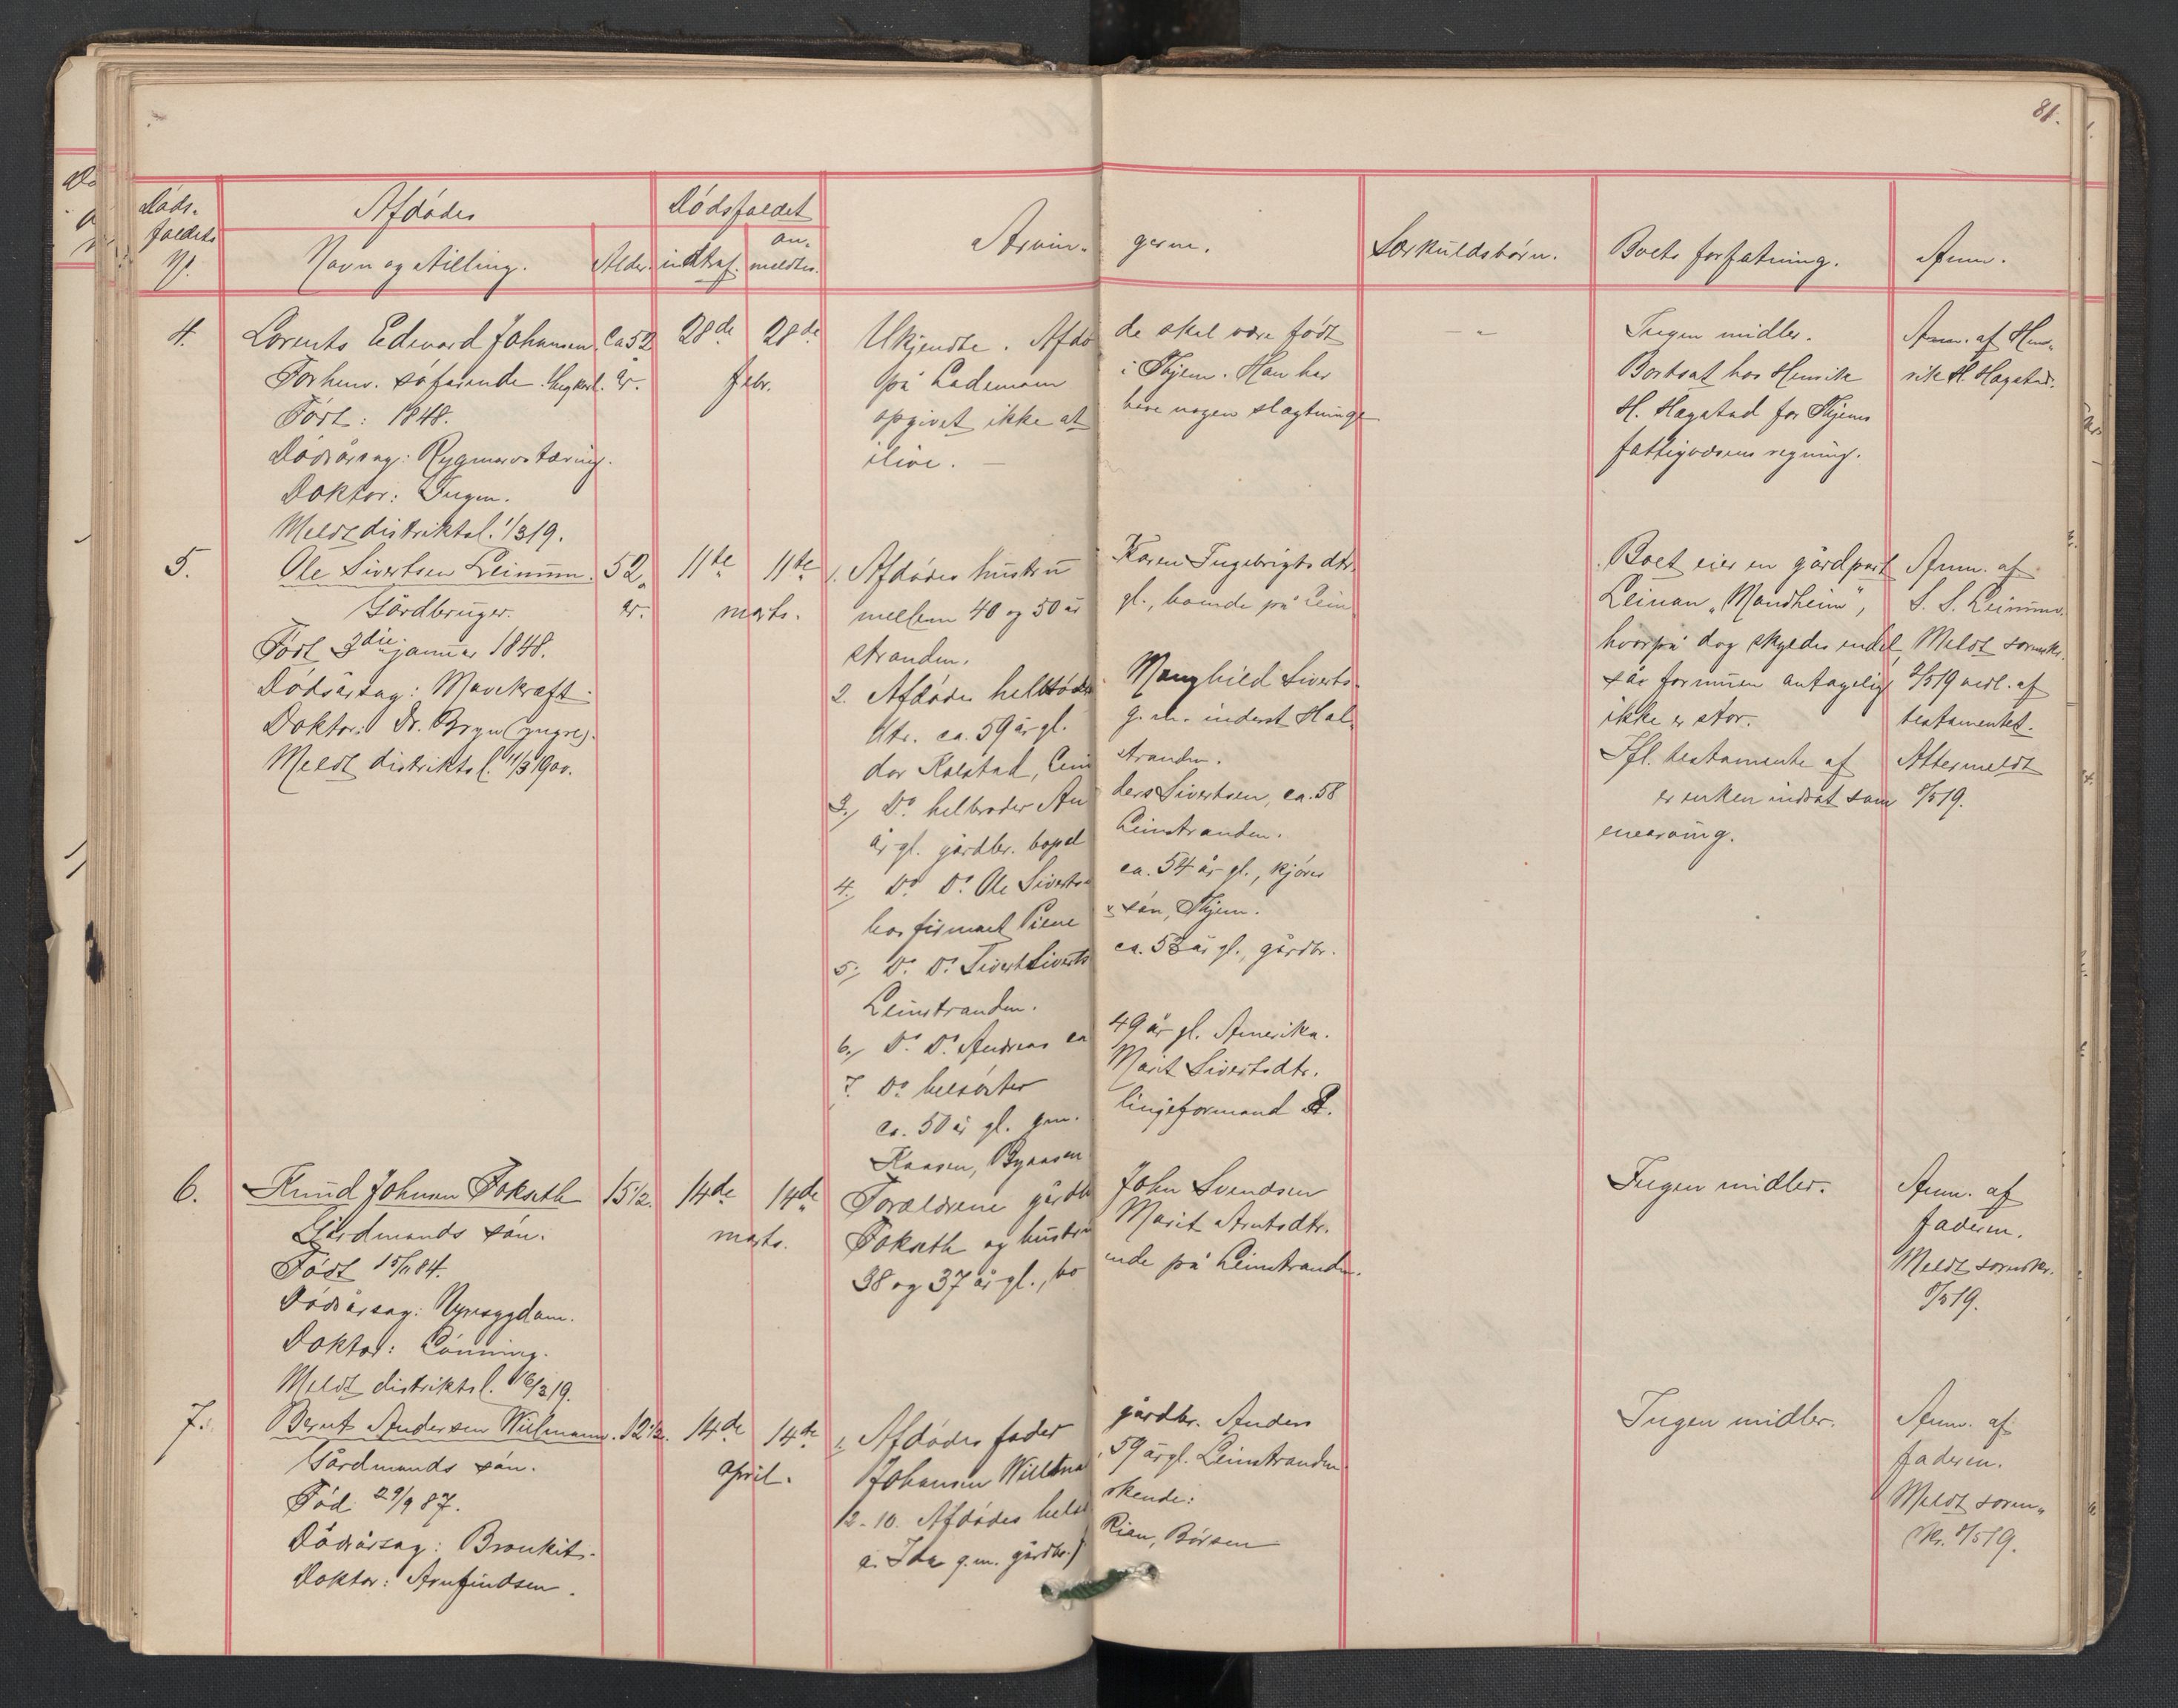 81.
Døds-
faldets
N°.
Afdødes
Navn og stilling.
Alder.
Dødsfaldet
indtraf.
an-
meldtes.
Arvin- gerne.
Særkuldsbørn.
Boets forfatning.
Anm.
4.
Lorents Edvard Johansen.
Forhenv. søfarende. Ungkarl.
Født: 1848.
Dødsårsag: Rygmarvstæring.
Doktor: Ingen.
Meldt distriktsl. 1/3 19.
Ca 52
år.
28de 28de
febr.
Ukjendte. Afdø de skal være født
på Lademoen i Thjem. Han har
opgivet ikke at have nogen slægtninge
ilive. —
— "
Ingen midler.
Bortsat hos Henrik
H. Hagstad for Thjems
fattigvæsens regning.
Anm. af Hen-
rik H. Hagstad.
5.
Ole Sivertsen Leinum.
Gårdbruger.
Født 3die januar 1848.
Dødsårsag: Mavekræft.
Doktor: Dr. Bryn (yngre).
Meldt distriktsl. 11/3 1900.
52
år.
11te 11te
marts.
1. Afdødes hustru Karen Ingebrigtsdtr.
mellem 40 og 50 år gl., boende på Lein
stranden.
2. Afdødes helsøster Manghild Siverts
dtr. ca. 59 år gl. g. m. inderst Hal-
dor Kolstad, Lein stranden.
3., Do helbroder An ders Sivertsen, ca. 58
år gl. gårdbr. bopæl Leinstranden.
4., Do Do Ole Siverts ca. 54 år gl., kjører
hos firmaet Piene & søn, Thjem.
5., Do Do Sivert Siverts ca. 53 år gl., gårdbr.
Leinstranden.
6., Do Do Andreas ca 49 år gl. Amerika.
7. Do helsøster Marit Sivertsdtr.
ca. 50 år gl. gm. linjeformand P.
Kaasen, Bynæsen
Boet eier en gårdpart
Leinan "Mandheim",
hvorpå dog skyldes endel,
så formuen antagelig
ikke er stor.
Ifl. testamente af
er enken indsat som
enearving.
Anm. af
S. S. Leinum.
Meldt sorenskr.
2/5 19 vedl. af
testamentet.
Attermeldt
8/5 19.
6.
Knud Johnsen Fokseth
Gårdmands søn.
Født 15/11 84.
Dødsårsag: Nyresygdom.
Doktor: Lønning.
Meldt distriktsl. 16/3 19.
15 1/2.
14de 14de
marts.
Forældrene gårdb John Svendsen
Fokseth og hustru Marit Arntsdtr.
38 og 37 år gl., bo ende på Leinstranden.
Ingen midler.
Anm. af
faderen.
Meldt sorenskr.
8/5 19.
7.
Bernt Andersen Willmann.
Gårdmands søn.
Fød. 29/9 87.
Dødsårsag: Bronkit.
Doktor: Arnfindsen.
12 1/2.
14de 14de
april.
1. Afdødes fader gårdbr. Anders
Johansen Willma 59 år gl. Leinstranden.
2-10. Afdødes helsø skende:
a. Ida g. m. gårdbr. Rian, Børsen
Ingen midler.
Anm. af
faderen.
Meldt soren-
skr. 8/5 19.